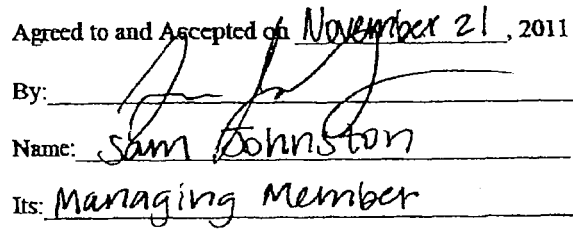 Agreed to and Accepted on November 21, 2011
By:
Name: Sam Johnston
Its: Managing Member